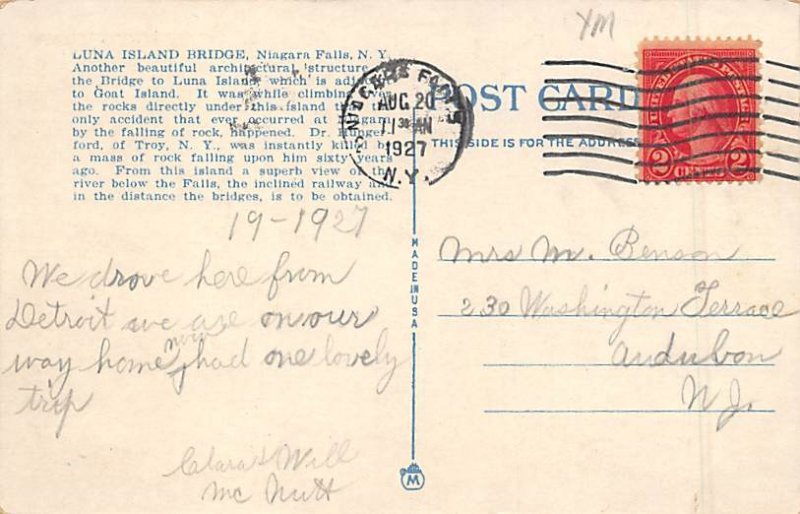 YM
LUNA ISLAND BRIDGE, Niagara Falls, N. Y.
Another beautiful architectural structure
the Bridge to Luna Island, which is
to Goat Island. It was while climbing
the rocks directly under this island that the
only accident that ever occurred at
by the falling of rock, happened. Dr.
ford, of Troy, N. Y., was instantly killed by
a mass of rock falling upon him sixty years
ago. From this island a superb view of the
river below the Falls, the inclined railway and
in the distance the bridges, is to be obtained.
FALLS
AUG 20
11 30 AM
1927
N.Y.
POST CARD
THIS SIDE IS FOR THE ADDRESS
2 CENTS 2
19-1927
We drove here from
Detroit we are on our
way home now, had one lovely
trip
Clara & Will
Mc Nutt
MADE IN USA
M
Mrs M. Benson
230 Washington Terrace
Audubon
N J.